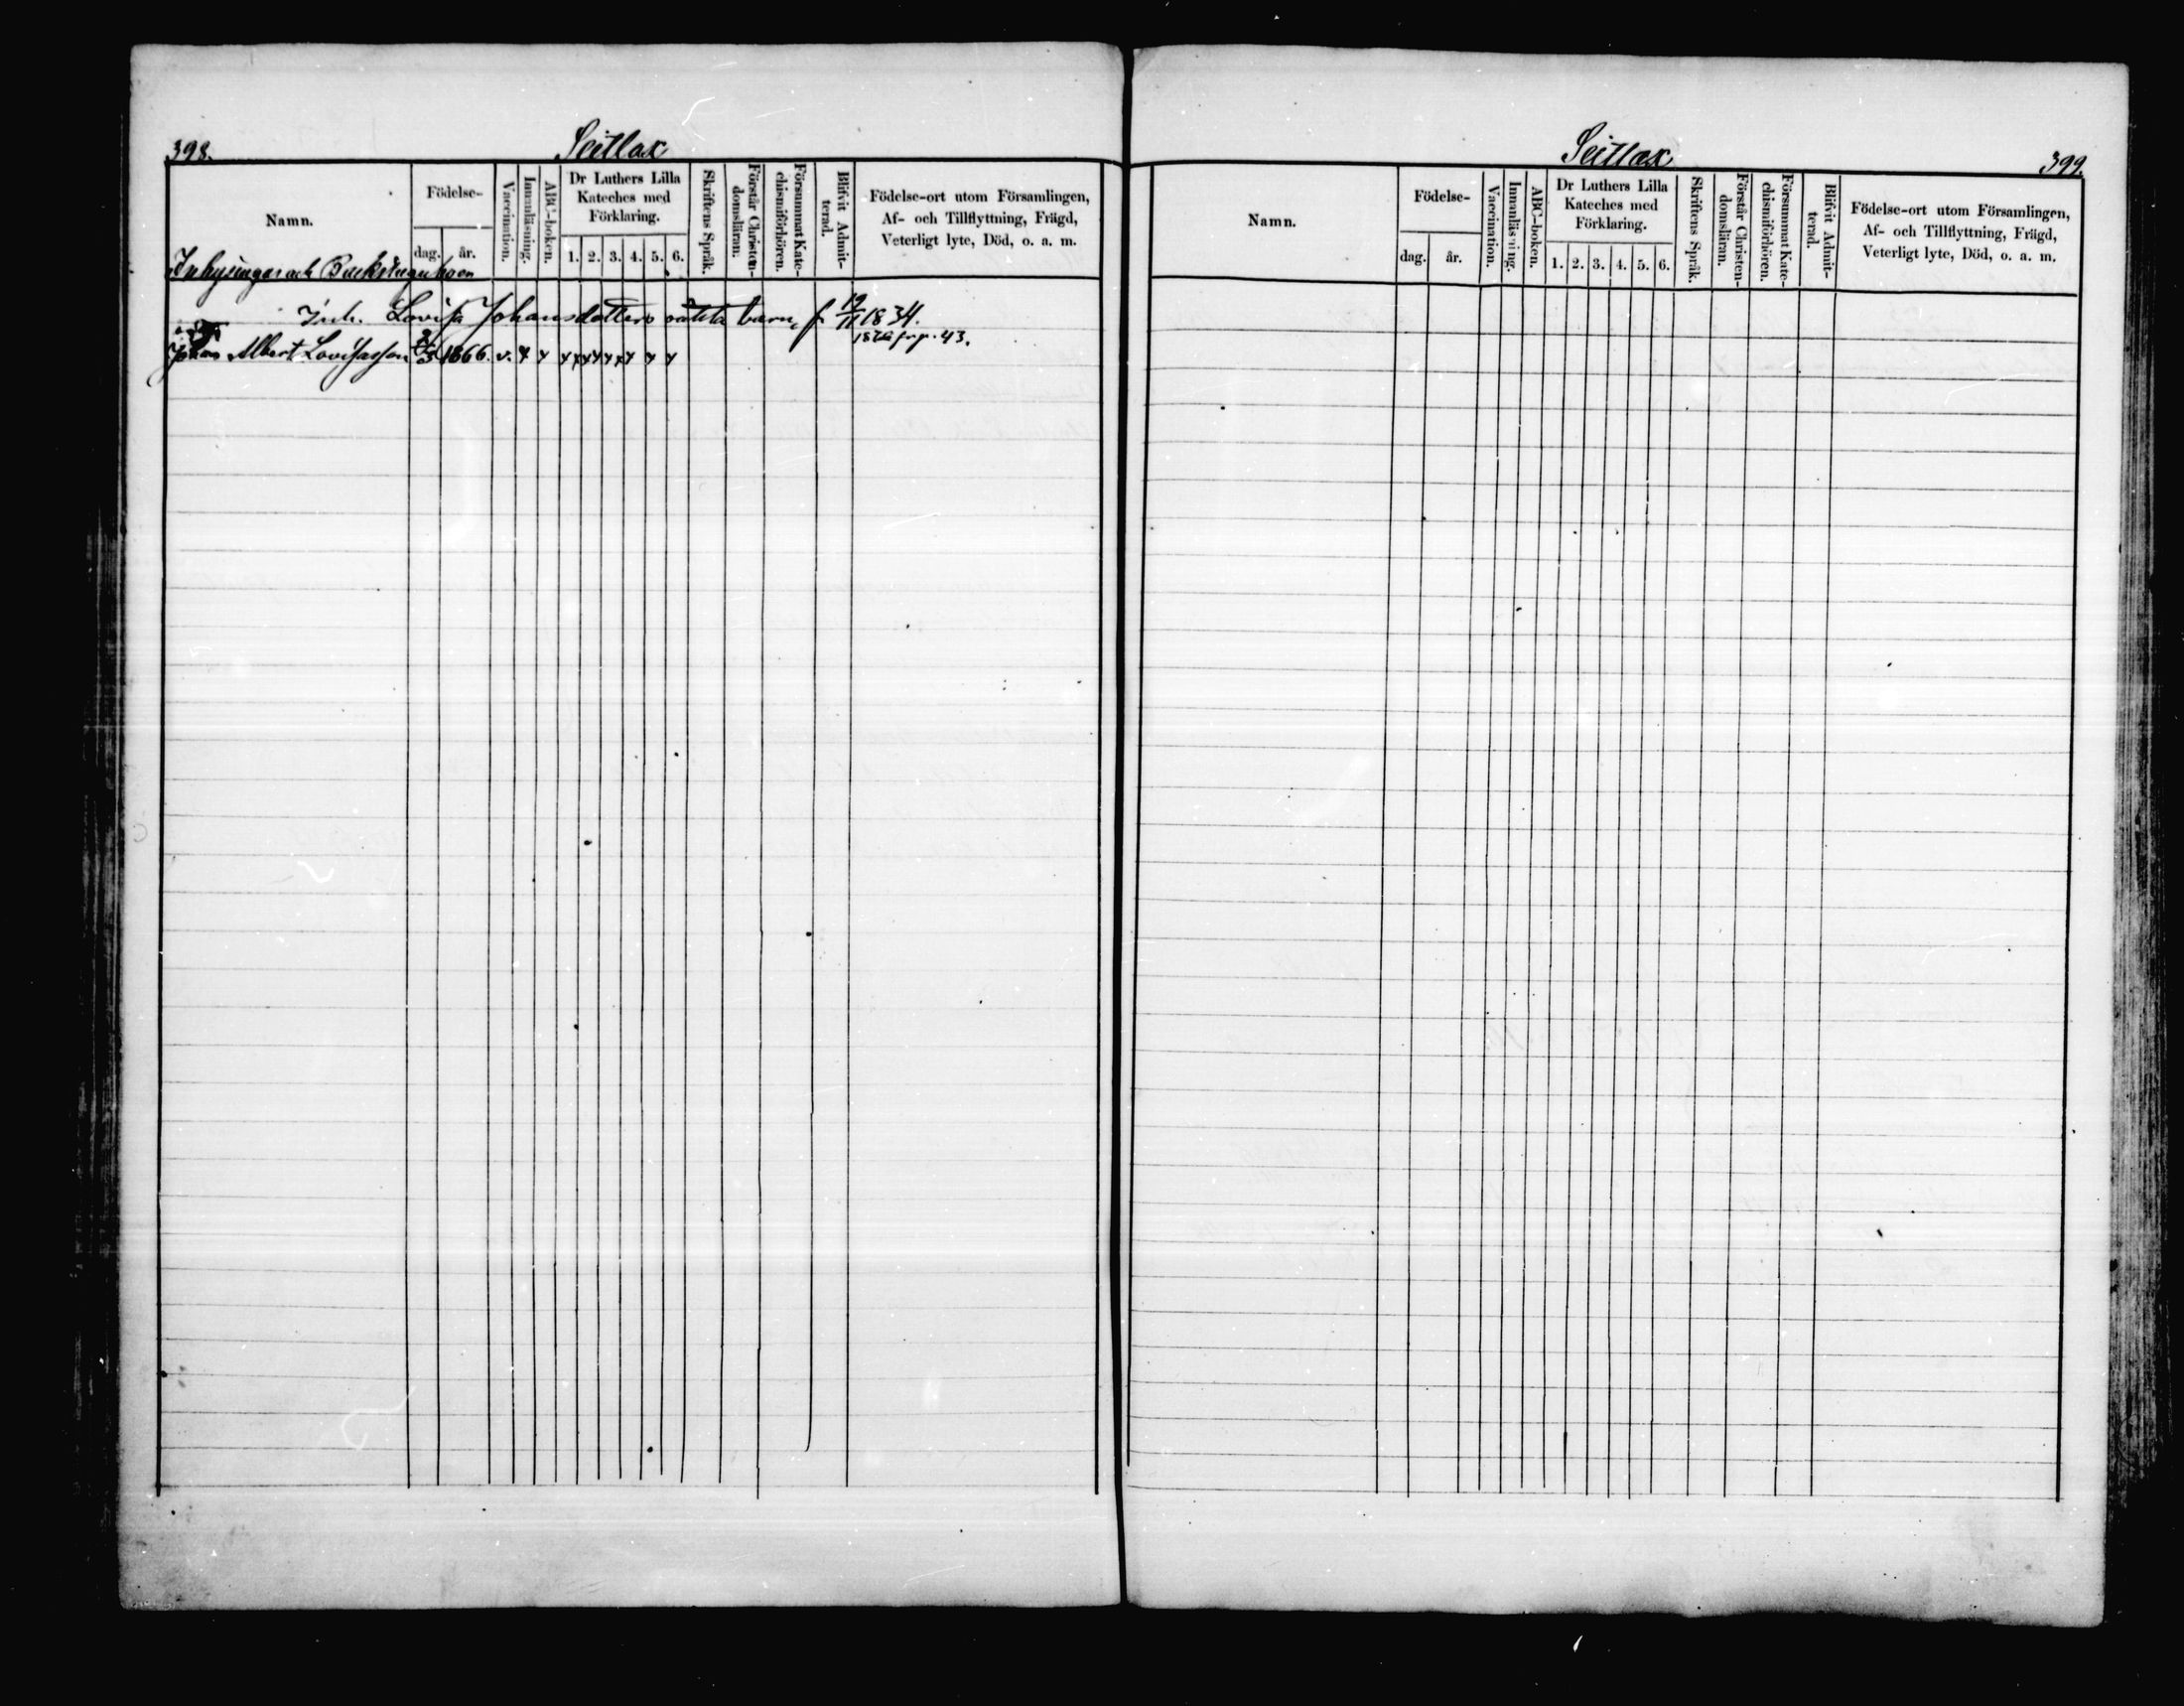 398. Seitlax
Namn. Födelse- dag. år. Vaccination. Innanläsning. ABC-boken. Dr Luthers Lilla Kateches med Förklaring. 1. 2. 3. 4. 5. 6. Skriftens Språk. Förstår Christen-domsläran. Försummat Kate-chismiförhören. Blifvit Admit-terad. Födelse-ort utom Församlingen, Af- och Tillflyttning, Frägd, Veterligt lyte, Död, o. a. m.
Inhysingar och
Inh. Lovisa Johansdotters oäkta barn, f. 19/11 1834.
Johan Albert Lovisasson 1866. v. x x x x x x x x x x 1876 fr. p. 43.
Seitlax 399.
Namn. Födelse- dag. år. Vaccination. Innanläsning. ABC-boken. Dr Luthers Lilla Kateches med Förklaring. 1. 2. 3. 4. 5. 6. Skriftens Språk. Förstår Christen-domsläran. Försummat Kate-chismiförhören. Blifvit Admit-terad. Födelse-ort utom Församlingen, Af- och Tillflyttning, Frägd, Veterligt lyte, Död, o. a. m.